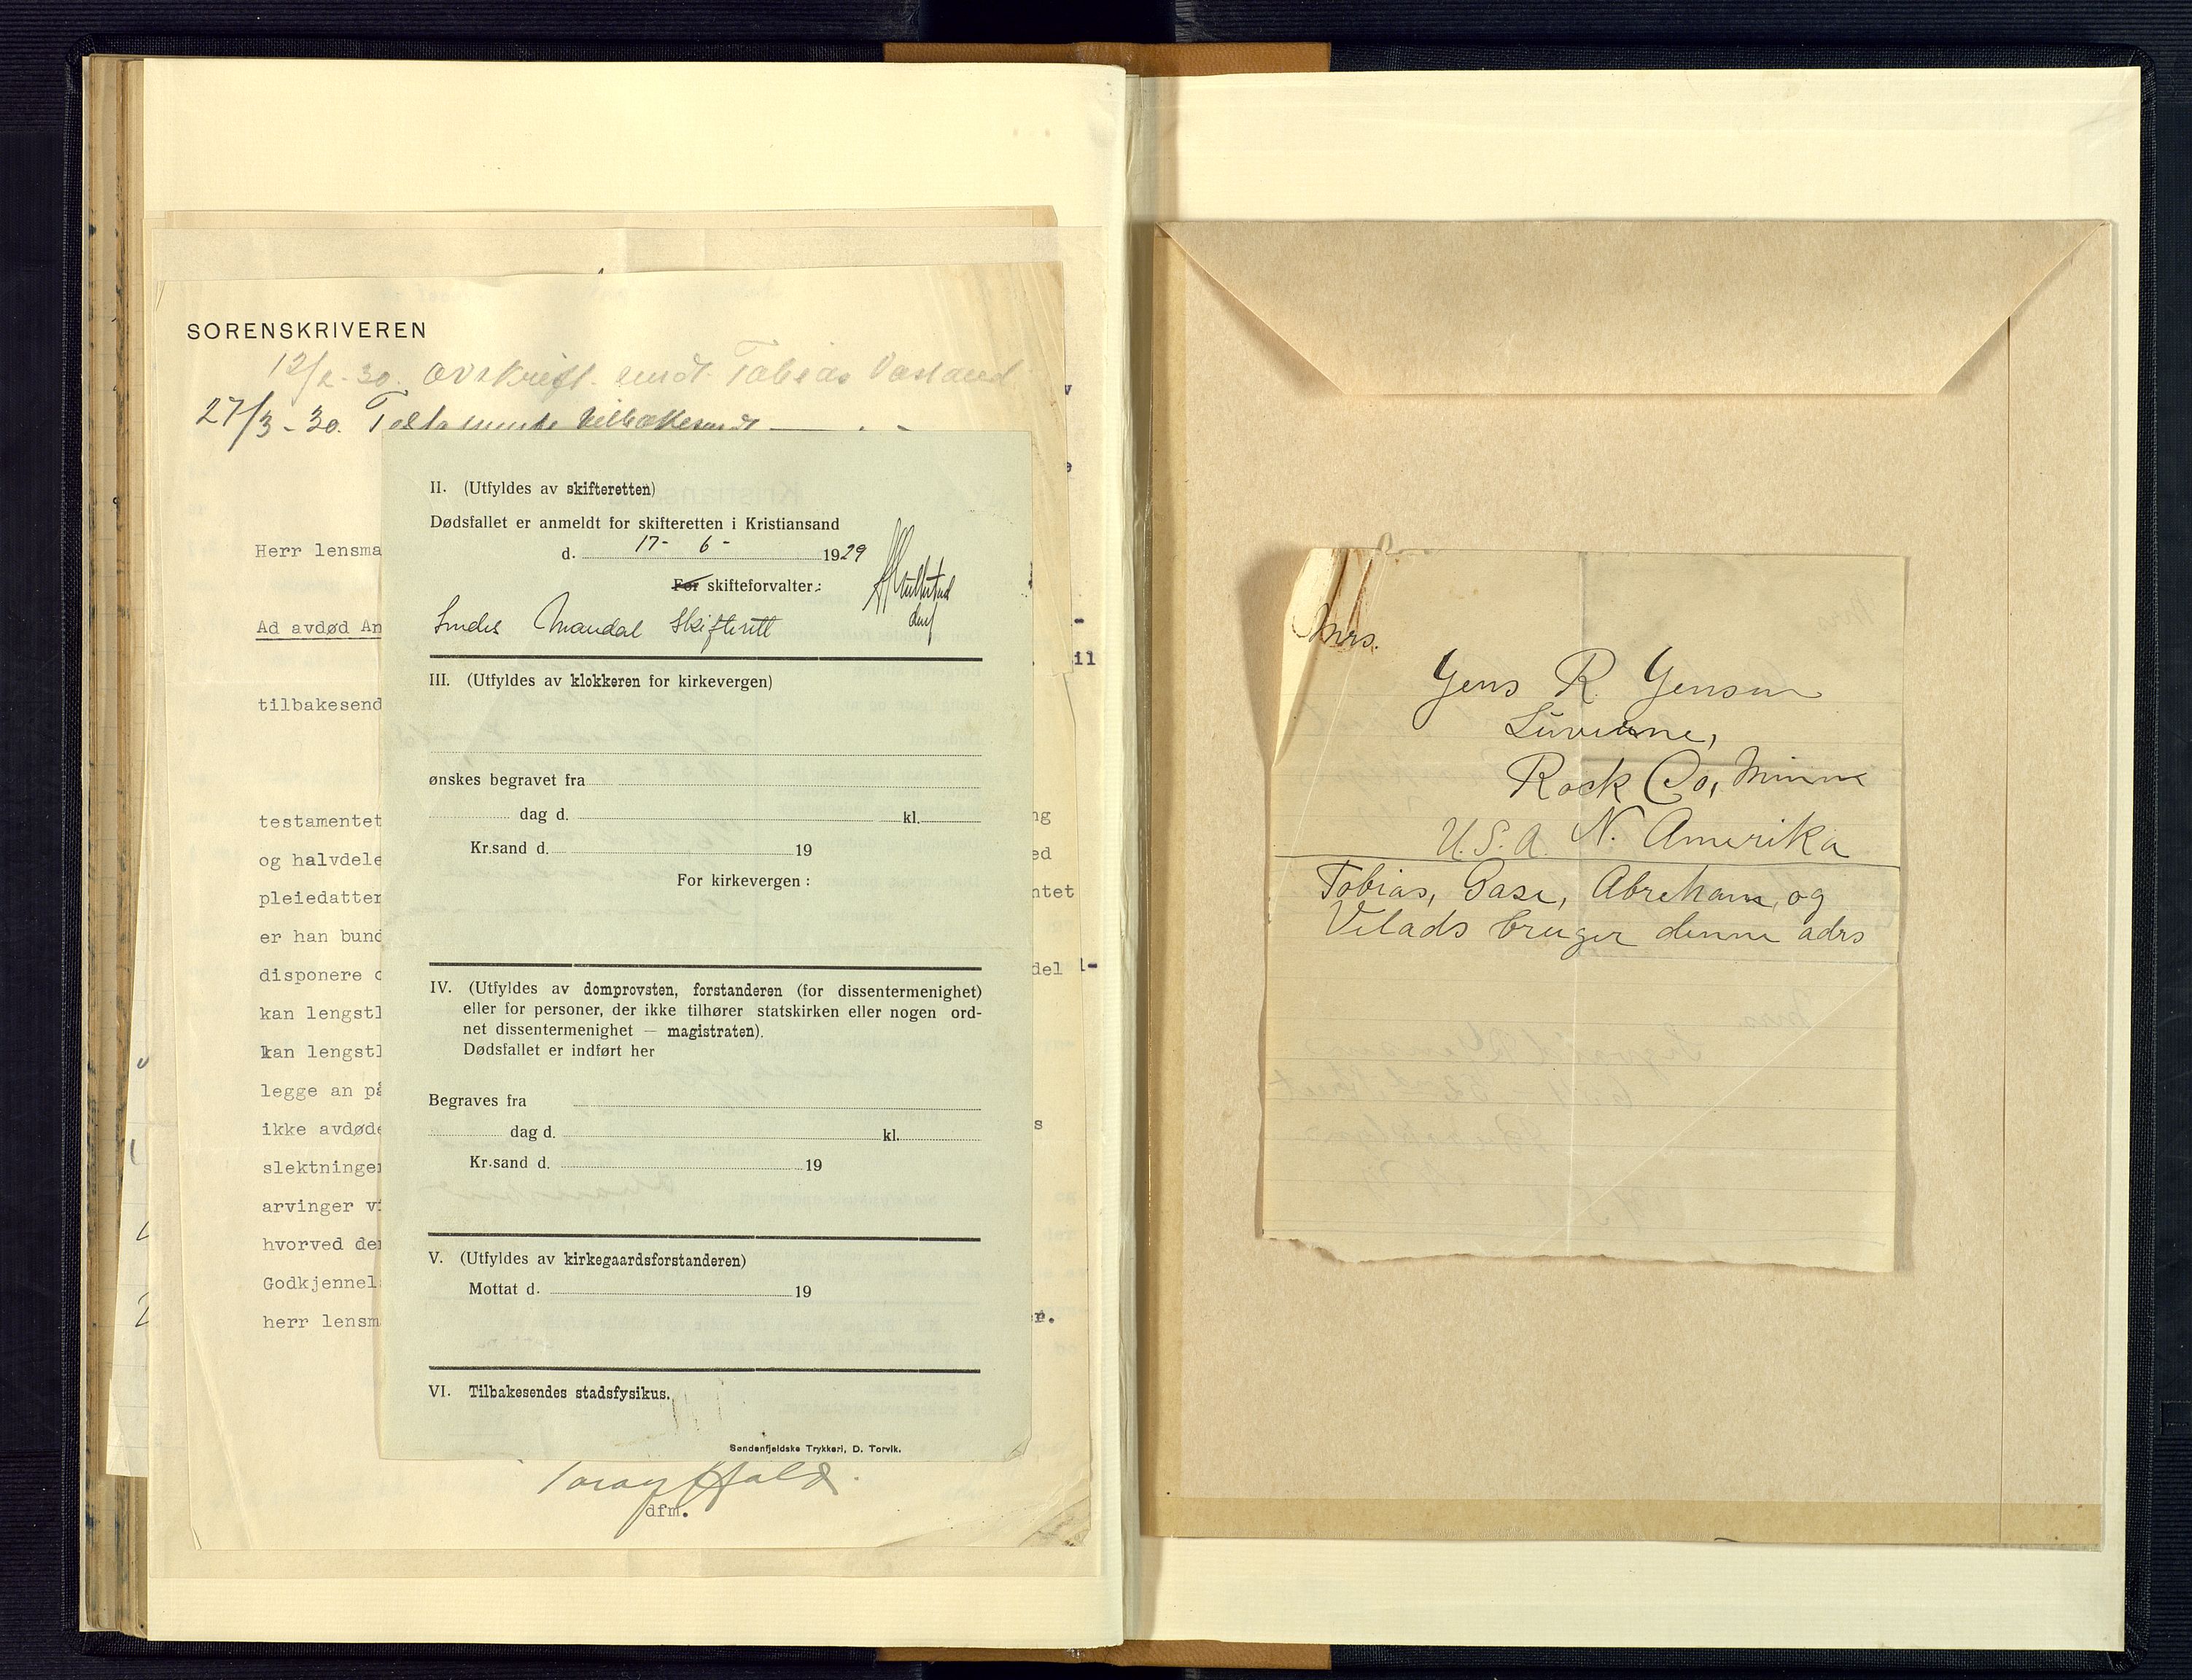 SORENSKRIVEREN
12/2-30. avskrift sendt Tobias
27/3-30. Testamente tilbakesendt
Herr lensma
Ad avdød An
tilbakesend
testamentet
og halvdele
pleiedatter
er han bund
disponere
kan lengstl
kan lengstl
legge an på
ikke avdøde
slektninger
arvinger
hvorved de
Godkjennel
herr lensm
dfm.
II. (Utfyldes av skifteretten)
Dødsfallet er anmeldt for skifteretten i Kristiansand
d. 17- 6- 1929
For skifteforvalter:
Sendes Mandal Skifterett
III. (Utfyldes av klokkeren for kirkevergen)
ønskes begravet fra
dag d. kl.
Kr.sand d. 19
For kirkevergen:
IV. (Utfyldes av domprovsten, forstanderen (for dissentermenighet)
eller for personer, der ikke tilhører statskirken eller nogen ord-
net dissentermenighet — magistraten).
Dødsfallet er indført her
Begraves fra
dag d. kl.
Kr.sand d. 19
V. (Utfyldes av kirkegaardsforstanderen)
Mottat d. 19
VI. Tilbakesendes stadsfysikus.
Søndenfjeldske Trykkeri, D. Torvik.
Mrs.
Jens R. Jensen
Luverne,
Rock Co, Minn
U.S.A. N. Amerika
Tobias, Gase, Abreham, og
Velads bruger denne adrs